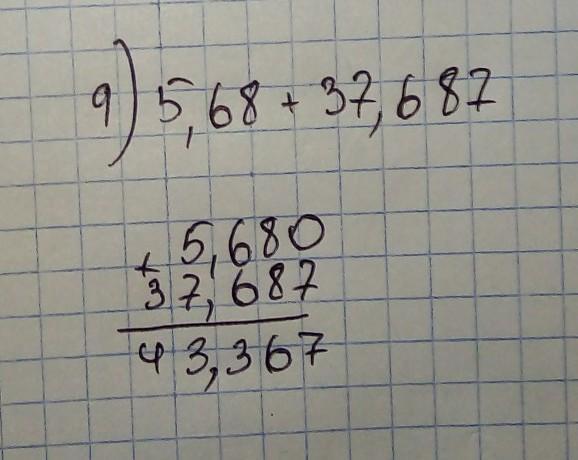 9) 5,68 + 37,687
+ 5,680
37,687
43,367